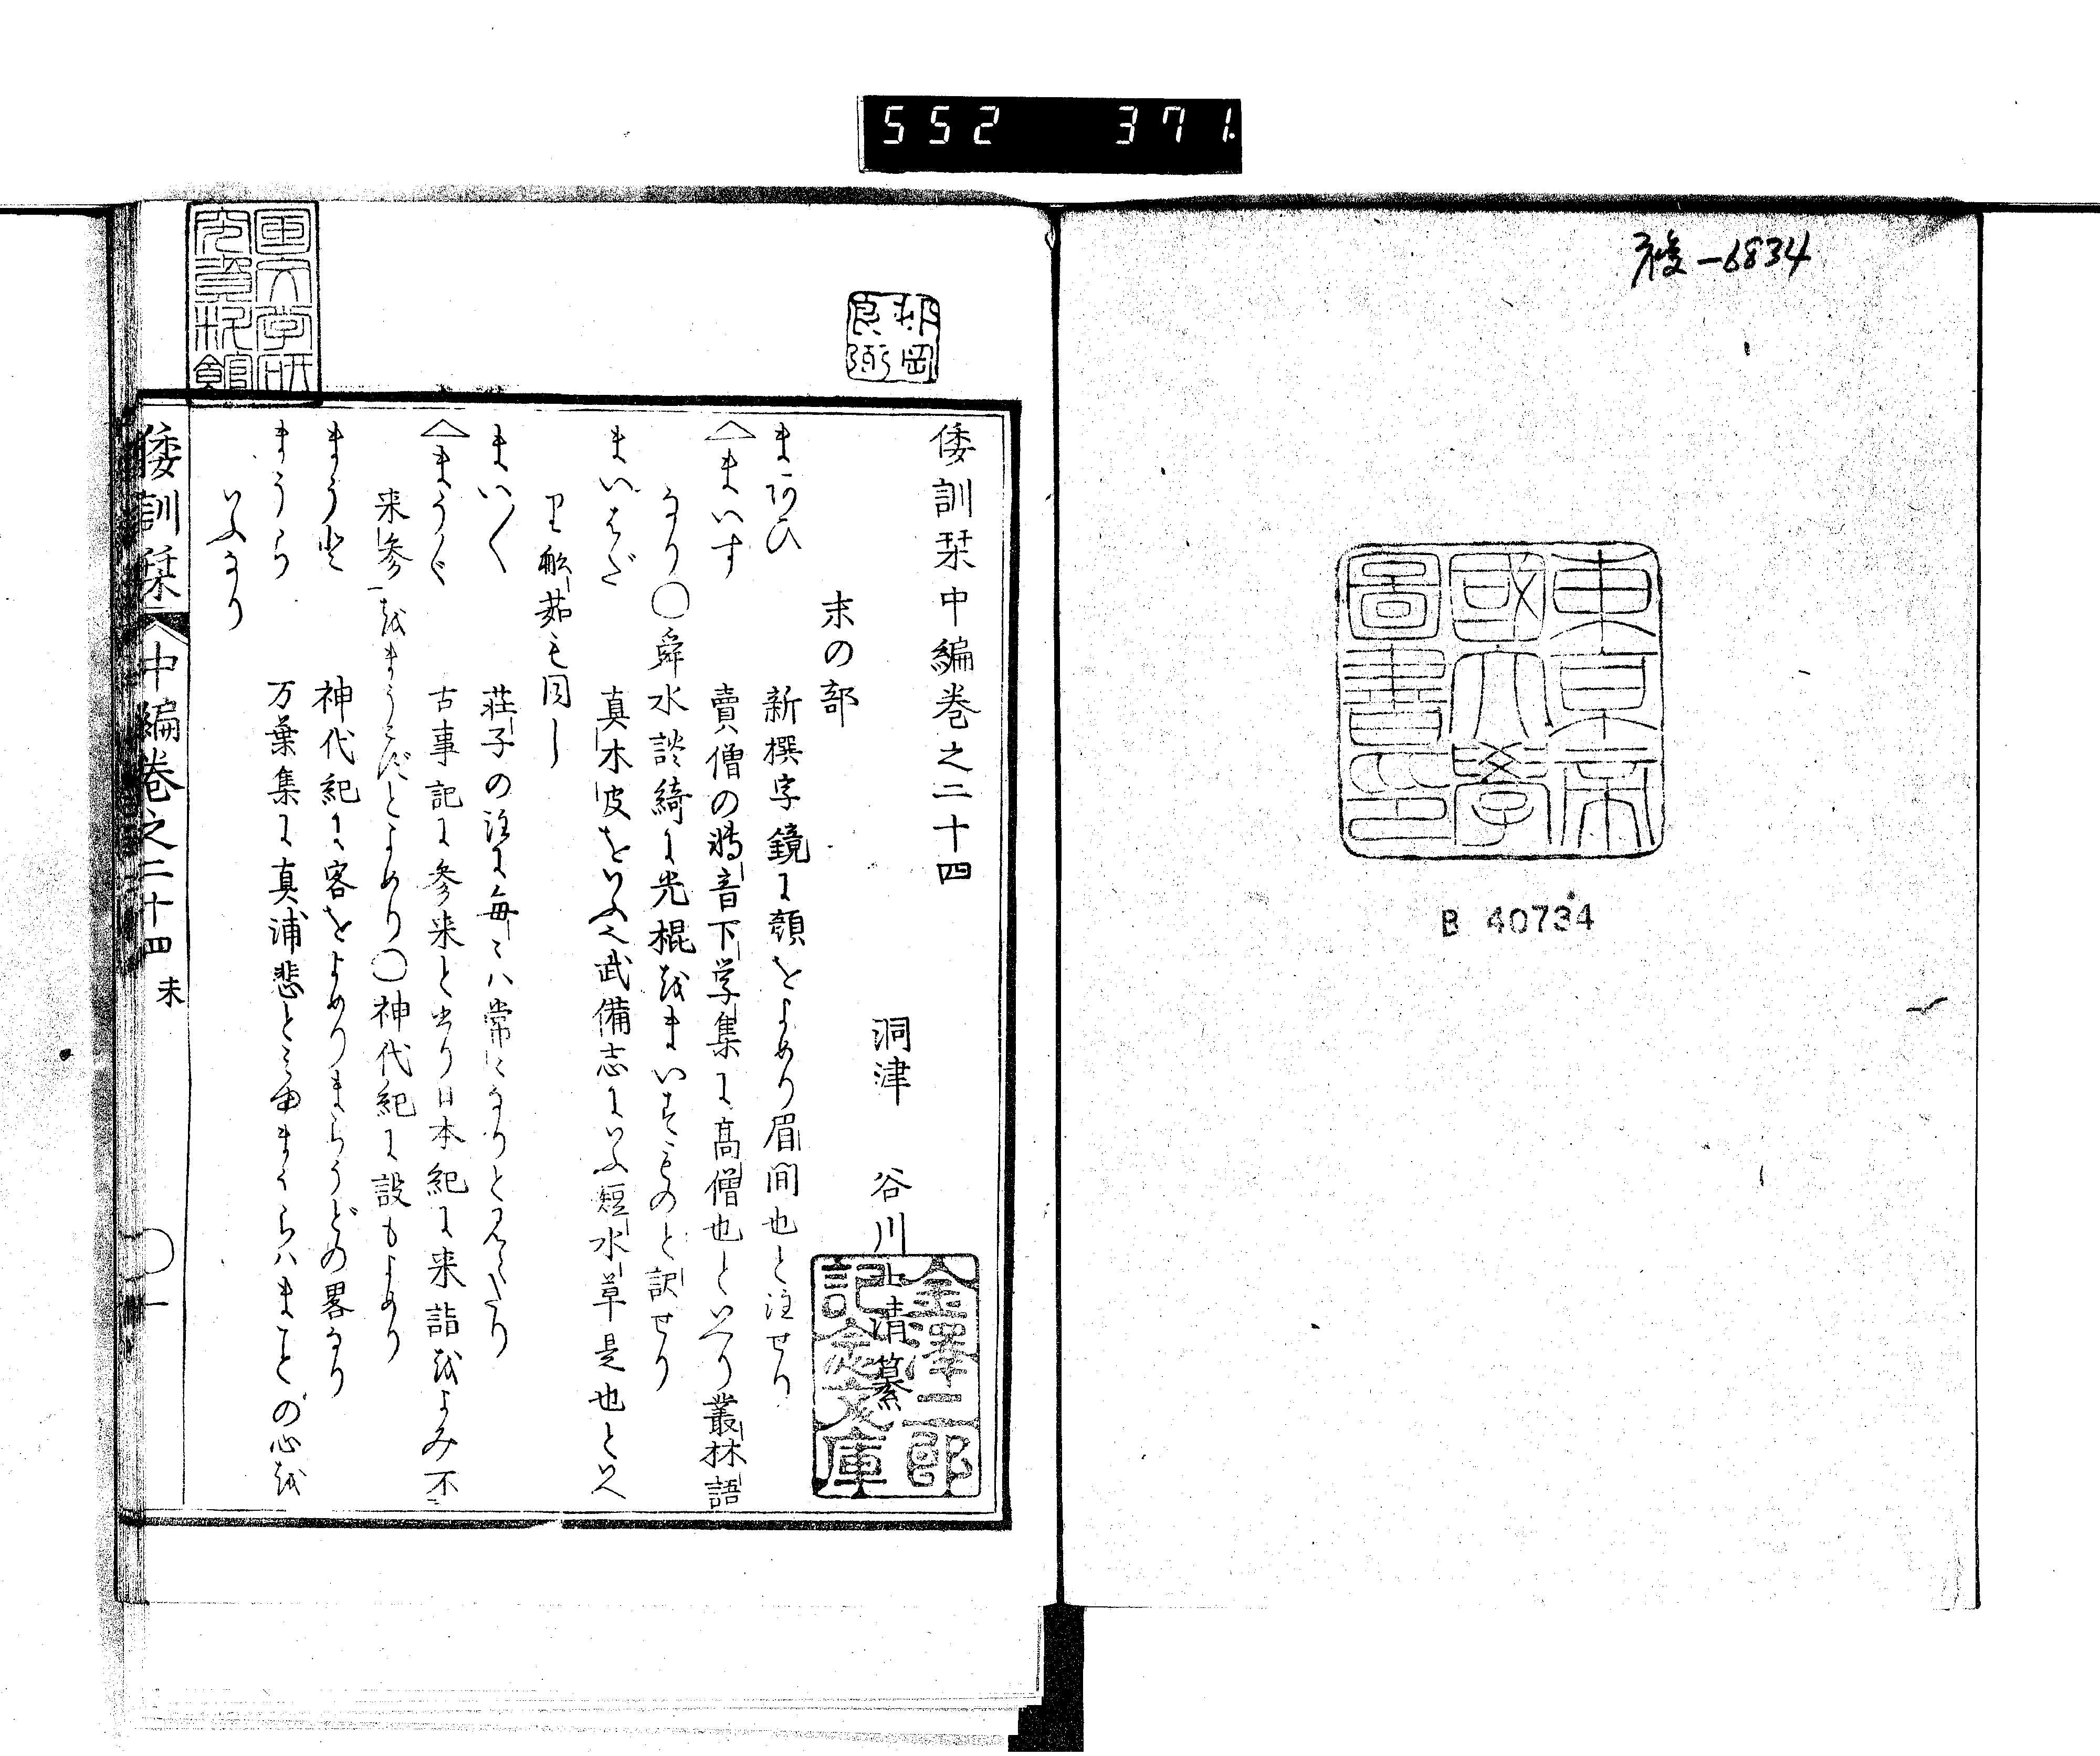 552 371
複-6834
東京帝
國大學
圖書印
B 40734
倭訓栞中編巻之二十四
洞津 谷川士清纂
金澤庄三郎
記念文庫
末の部
まあひ 新撰字鏡に顔をよめり眉間也と注せり
まいす 賣僧の轉音下学集に高僧也といへり叢林語
なり○舜水談綺に光棍をまいすものと訳せり
まいはだ 真木皮をいふ也武備志にいふ短水草是也といへ
り 茹も同し
まい〱 荘子の注に毎〻ハ常になりとみえたり
まうく 古事記に参来と書り日本紀に来詣をよみ不
来参をまうこずとよめり○神代紀に設もよめり
まうと 神代紀に客をよめりまらうどの畧なり
まうら 万葉集に真浦悲とみゆまうらハまことの心を
いふなり
倭訓栞 中編巻之二十四 末 ○一
国文学研
究資料館
岡
良弼